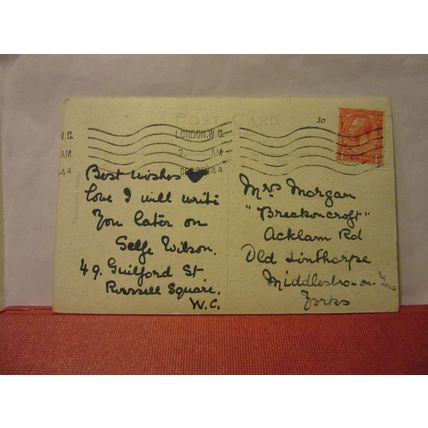 POST CARD
30
LONDON. W.C.
AM
W.C.
AM
Best wishes &
love I will write
you later on
Selfe Wilson.
49. Guilford St.
Russell Square.
W.C.
Mrs Morgan
"Breakoncroft"
Acklam Rd
Old Linthorpe
Middlesbro-on-Tees
Yorks